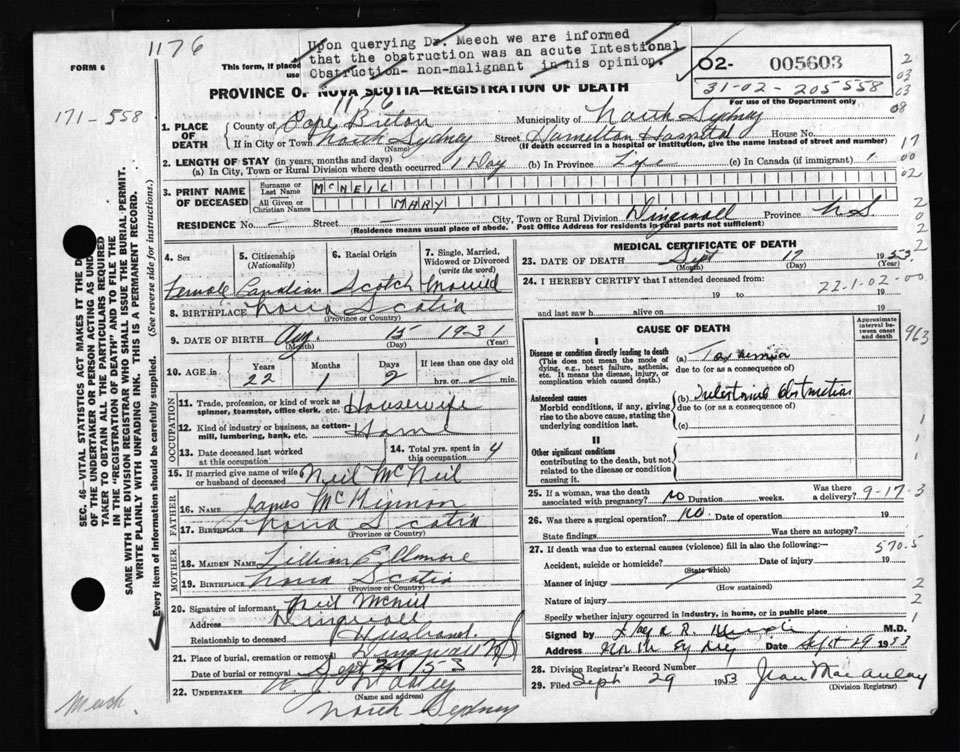 1176
Upon querying Dr. Meech we are informed
that the obstruction was an acute Intestional
Obstruction- non-malignant in his opinion.
FORM 6
This form, if placed
use
O2- 005603
31-02-205558
For use of the Department only
PROVINCE OF NOVA SCOTIA—REGISTRATION OF DEATH
171-558
1176
1. PLACE OF DEATH
County of Cape Breton Municipality of North Sydney
If in City or Town North Sydney Street Hamilton Hospital House No.
(Name) (If death occurred in a hospital or institution, give the name instead of street and number)
2. LENGTH OF STAY (in years, months and days)
(a) In City, Town or Rural Division where death occurred 1 Day (b) In Province Life (c) In Canada (if immigrant)
3. PRINT NAME OF DECEASED
Surname or Last Name McNEIL
All Given or Christian Names MARY
RESIDENCE No. — Street — City, Town or Rural Division Dingwall Province N S
(Residence means usual place of abode. Post Office Address for residents in rural parts not sufficient)
SEC. 46—VITAL STATISTICS ACT MAKES IT THE D
OF THE UNDERTAKER OR PERSON ACTING AS UND
TAKER TO OBTAIN ALL THE PARTICULARS REQUIRED
IN THE "REGISTRATION OF DEATH" AND TO FILE THE
SAME WITH THE DIVISION REGISTRAR WHO SHALL ISSUE THE BURIAL PERMIT.
WRITE PLAINLY WITH UNFADING INK. THIS IS A PERMANENT RECORD.
Every item of information should be carefully supplied. (See reverse side for instructions.)
4. Sex
Female
5. Citizenship (Nationality)
Canadian
6. Racial Origin
Scotch
7. Single, Married, Widowed or Divorced (write the word)
Married
8. BIRTHPLACE Nova Scotia
(Province or Country)
9. DATE OF BIRTH Aug. 15 1931
(Month) (Day) (Year)
10. AGE in Years Months Days If less than one day
22 1 2 hrs. or min.
OCCUPATION
11. Trade, profession, or kind of work as spinner, teamster, office clerk, etc. Housewife
12. Kind of industry or business, as cotton-mill, lumbering, bank, etc. Home
13. Date deceased last worked at this occupation
14. Total yrs. spent in this occupation 4
15. If married give name of wife or husband of deceased Neil McNeil
FATHER
16. NAME James McKinnon
17. BIRTHPLACE Nova Scotia
(Province or Country)
MOTHER
18. MAIDEN NAME Lillian
19. BIRTHPLACE Nova Scotia
(Province or Country)
20. Signature of informant Neil McNeil
Address Dingwall
Relationship to deceased Husband.
21. Place of burial, cremation or removal Dingwall
Date of burial or removal Sept 21/53
22. UNDERTAKER
(Name and address)
North Sydney
Meech.
MEDICAL CERTIFICATE OF DEATH
23. DATE OF DEATH Sept 17 1953
(Month) (Day) (Year)
24. I HEREBY CERTIFY that I attended deceased from:
19 to 19
22-1-02-00
and last saw h alive on 19
CAUSE OF DEATH
Approximate interval between onset and death
I
Disease or condition directly leading to death
(This does not mean the mode of dying, e.g., heart failure, asthenia, etc. It means the disease, injury, or complication which caused death.)
(a) Toxaemia
due to (or as a consequence of)
Antecedent causes
Morbid conditions, if any, giving rise to the above cause, stating the underlying condition last.
(b) Intestinal obstruction
due to (or as a consequence of)
(c)
II
Other significant conditions
contributing to the death, but not related to the disease or condition causing it.
963
25. If a woman, was the death associated with pregnancy? no Duration weeks. Was there a delivery?
9-17-3
26. Was there a surgical operation? no Date of operation 19
State findings Was there an autopsy?
27. If death was due to external causes (violence) fill in also the following:—
570.5
Accident, suicide or homicide? Date of injury 19
(State which)
Manner of injury
(How sustained)
Nature of injury
Specify whether injury occurred in industry, in home, or in public place
Signed by M.D.
Address North Sydney Date Sept 29 1953
28. Division Registrar's Record Number
29. Filed Seph 29 1953 Jean MacAulay
(Division Registrar)